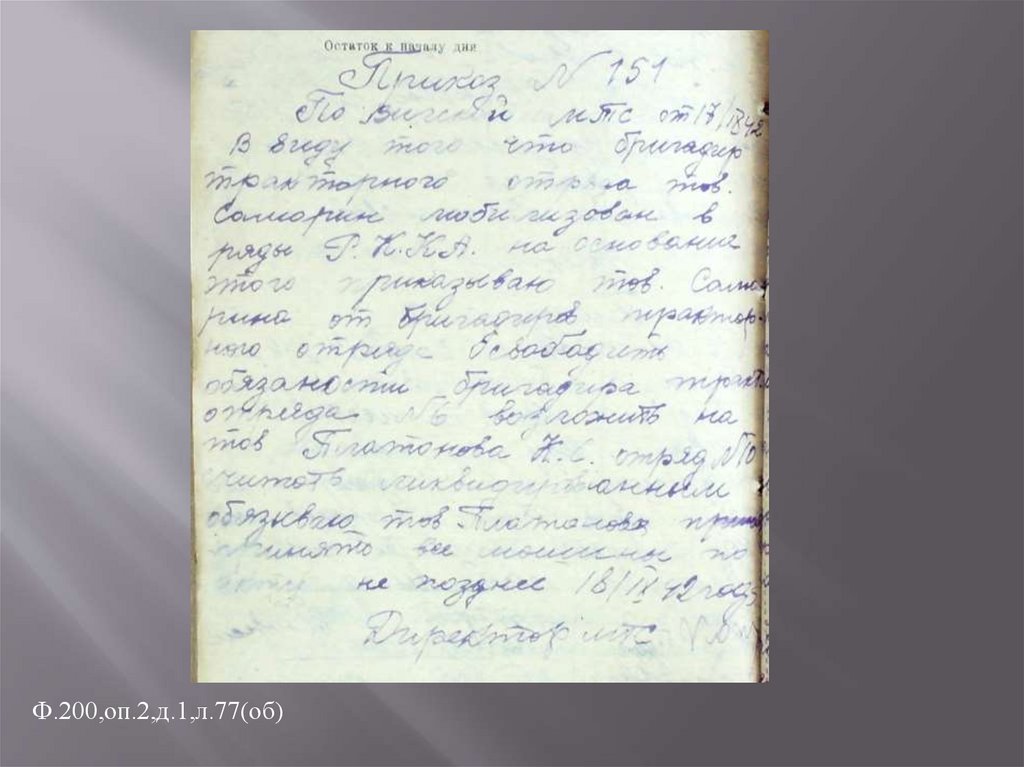 Остаток к началу дня
Приказ N 151
По МТС от 17/IX 42
В виду того что бригадир
тракторного отряда тов.
Самарин мобилизован в
ряды Р.К.К.А. на основание
этого приказываю тов. Сама
рина от бригадиров трактор-
ного отряда освабадить
обязаности бригадира тракт
отряда №6 возложить на
тов Платонова К.С. отряд №10
считать ликвидированным
обязываю тов Платанова
принято все машины по
акту не позднее 18/IX 42 года
Директор МТС
Ф.200,оп.2,д.1,л.77(об)